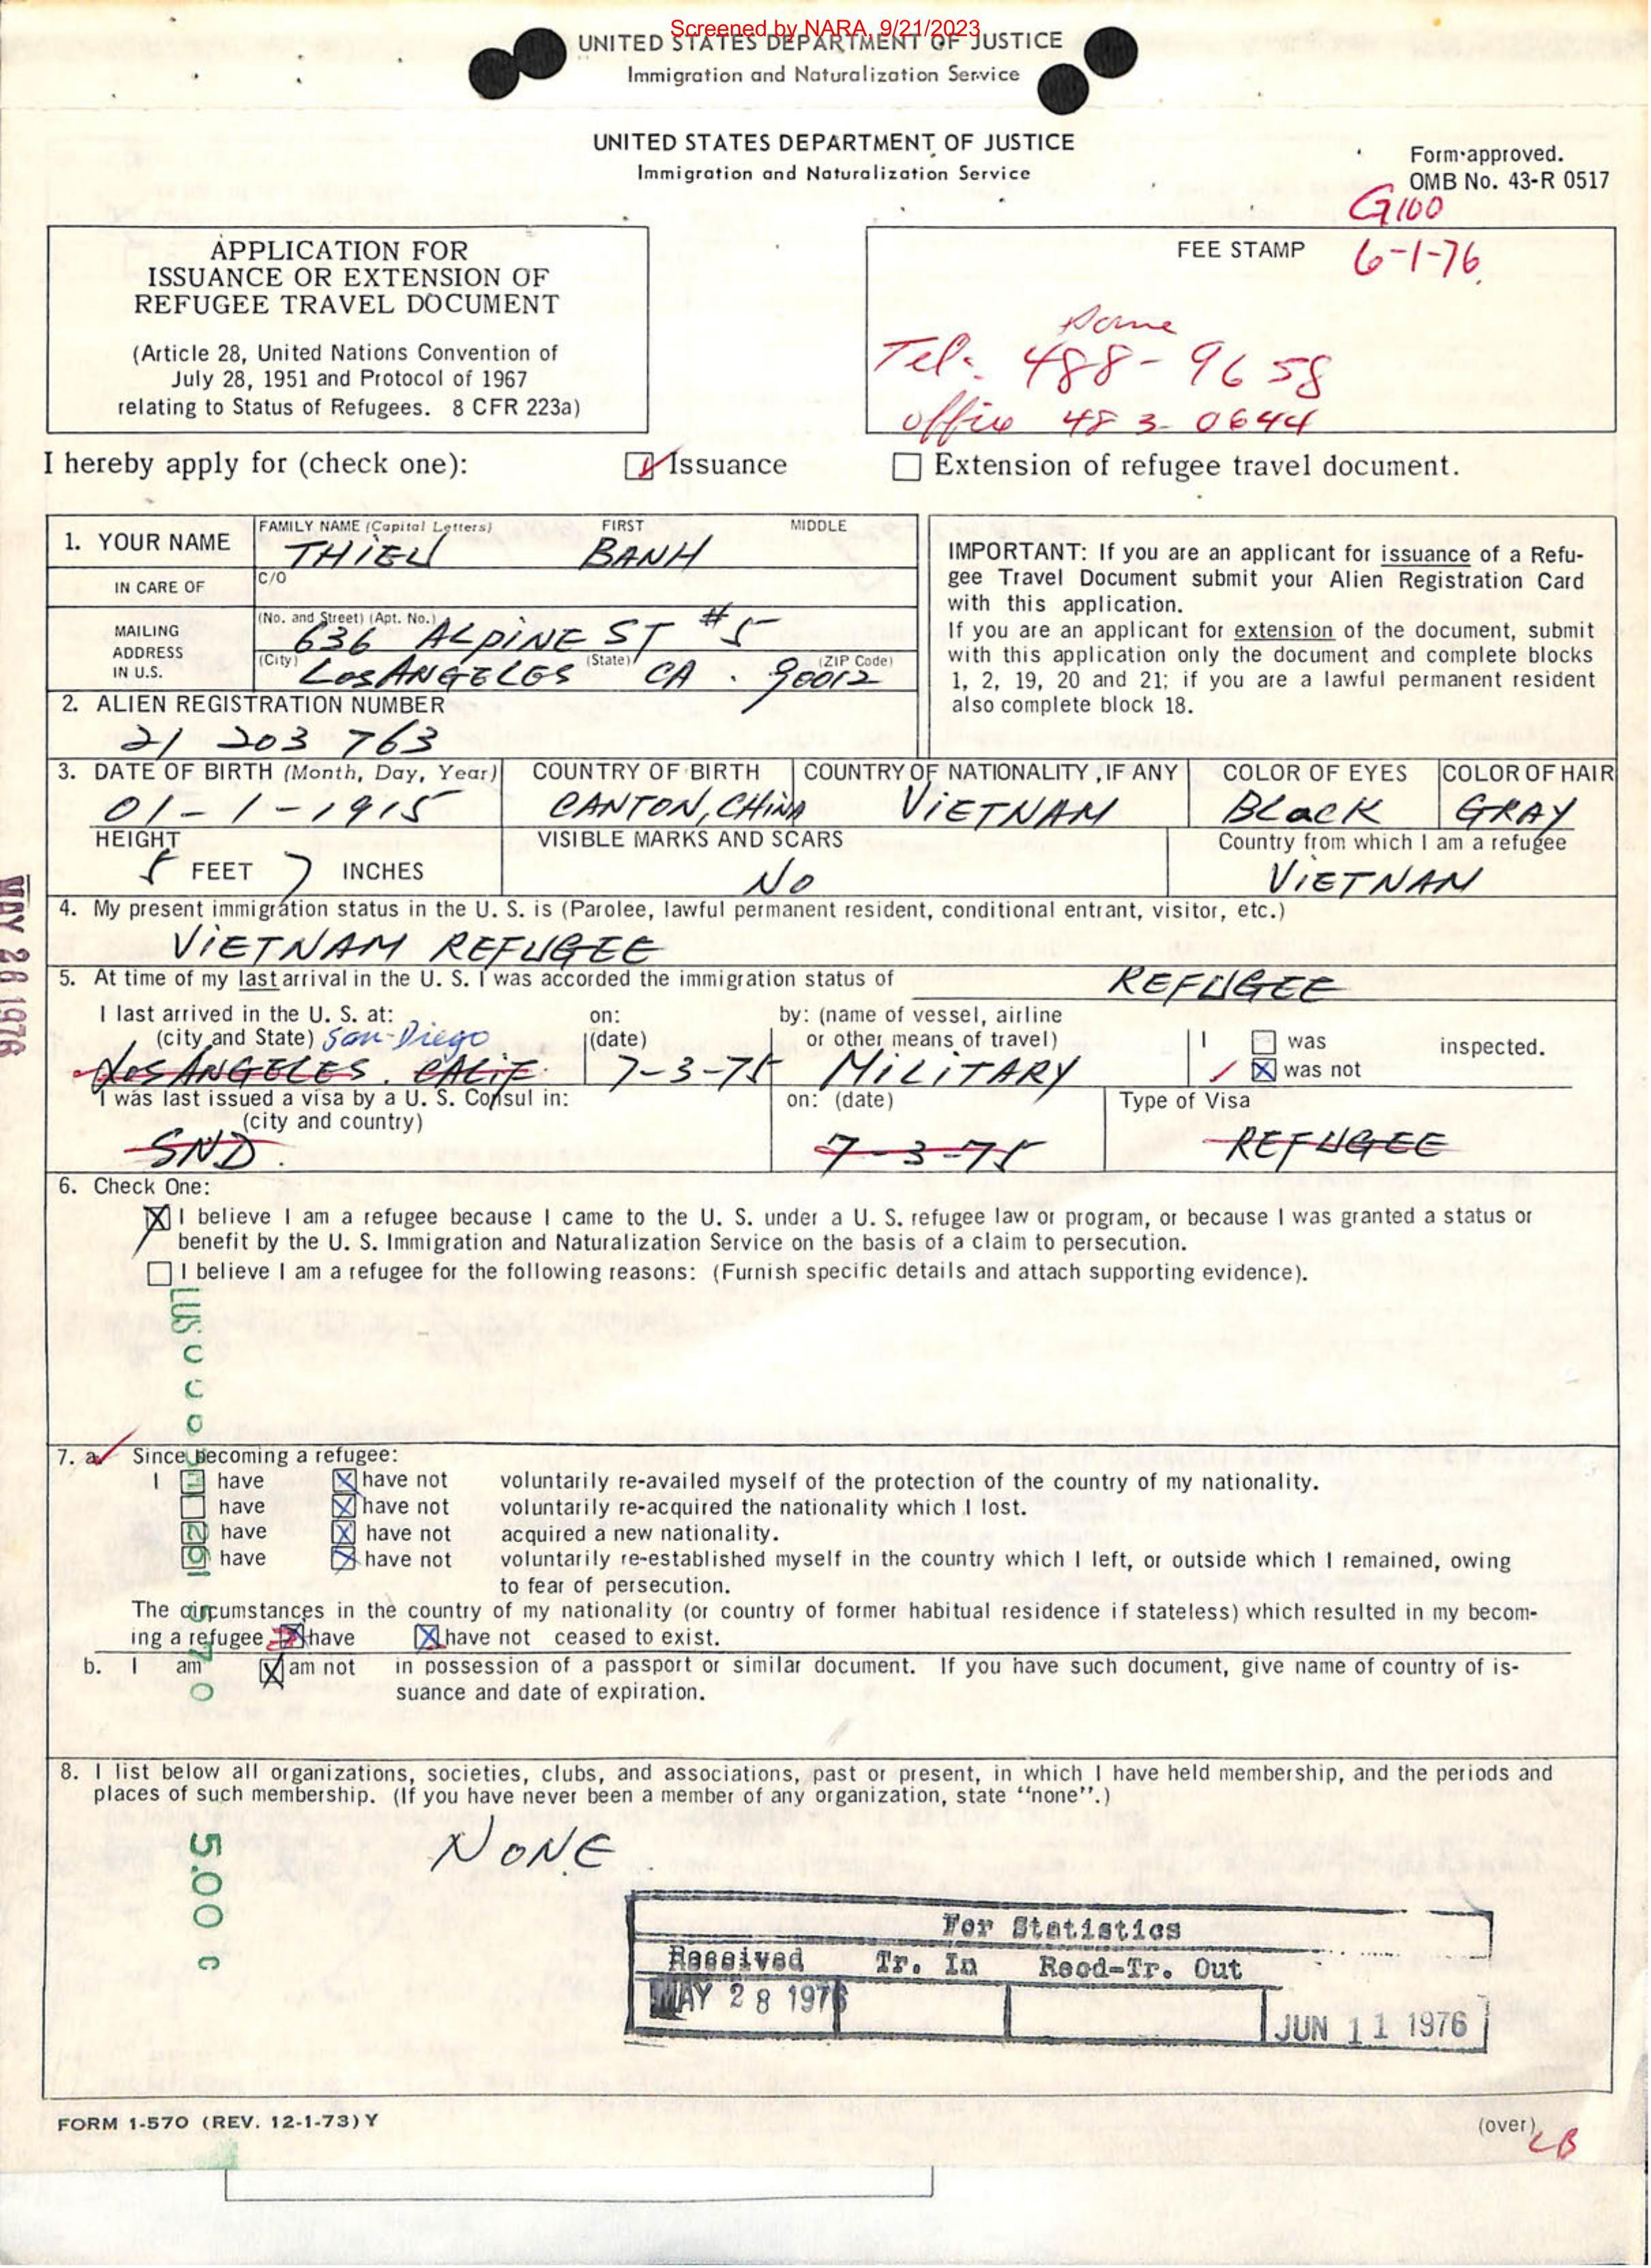 Screened by NARA, 9/21/2023
UNITED STATES DEPARTMENT OF JUSTICE
Immigration and Naturalization Service
UNITED STATES DEPARTMENT OF JUSTICE
Immigration and Naturalization Service
Form approved.
OMB No. 43-R 0517
G100
APPLICATION FOR
ISSUANCE OR EXTENSION OF
REFUGEE TRAVEL DOCUMENT
(Article 28, United Nations Convention of
July 28, 1951 and Protocol of 1967
relating to Status of Refugees. 8 CFR 223a)
FEE STAMP 6-1-76
Home
Tel. 488-9658
office 483-0644
I hereby apply for (check one): Issuance Extension of refugee travel document.
1. YOUR NAME FAMILY NAME (Capital Letters) FIRST MIDDLE
THIEU BANH
IN CARE OF C/O
MAILING ADDRESS IN U.S. (No. and Street) (Apt. No.)
636 ALPINE ST #5
(City) (State) (ZIP Code)
LOS ANGELES CA. 90012
IMPORTANT: If you are an applicant for issuance of a Refu-
gee Travel Document submit your Alien Registration Card
with this application.
If you are an applicant for extension of the document, submit
with this application only the document and complete blocks
1, 2, 19, 20 and 21; if you are a lawful permanent resident
also complete block 18.
2. ALIEN REGISTRATION NUMBER
21 203 763
3. DATE OF BIRTH (Month, Day, Year) COUNTRY OF BIRTH COUNTRY OF NATIONALITY, IF ANY COLOR OF EYES COLOR OF HAIR
01-1-1915 CANTON, CHINA VIETNAM BLACK GRAY
HEIGHT VISIBLE MARKS AND SCARS Country from which I am a refugee
5 FEET 7 INCHES NO VIETNAM
MAY 28 1976
4. My present immigration status in the U. S. is (Parolee, lawful permanent resident, conditional entrant, visitor, etc.)
VIETNAM REFUGEE
5. At time of my last arrival in the U. S. I was accorded the immigration status of REFUGEE
I last arrived in the U. S. at: on: by: (name of vessel, airline
(city and State) San-Diego (date) or other means of travel) I was inspected.
LOS ANGELES. CALIF. 7-3-75 MILITARY was not
I was last issued a visa by a U. S. Consul in: on: (date) Type of Visa
(city and country)
SND. 7-3-75 REFUGEE
6. Check One:
I believe I am a refugee because I came to the U. S. under a U. S. refugee law or program, or because I was granted a status or
benefit by the U. S. Immigration and Naturalization Service on the basis of a claim to persecution.
I believe I am a refugee for the following reasons: (Furnish specific details and attach supporting evidence).
7. a. Since becoming a refugee:
I have have not voluntarily re-availed myself of the protection of the country of my nationality.
have have not voluntarily re-acquired the nationality which I lost.
have have not acquired a new nationality.
have have not voluntarily re-established myself in the country which I left, or outside which I remained, owing
to fear of persecution.
The circumstances in the country of my nationality (or country of former habitual residence if stateless) which resulted in my becom-
ing a refugee have have not ceased to exist.
b. I am am not in possession of a passport or similar document. If you have such document, give name of country of is-
suance and date of expiration.
8. I list below all organizations, societies, clubs, and associations, past or present, in which I have held membership, and the periods and
places of such membership. (If you have never been a member of any organization, state "none".)
NONE
5.00 c
For Statistics
Received Tr. In Recd-Tr. Out
MAY 28 1976 JUN 11 1976
FORM I-570 (REV. 12-1-73) Y
(over)
LB